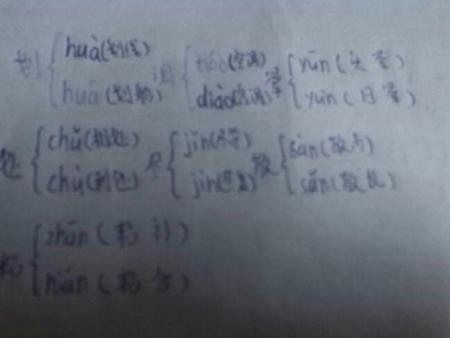 划 huà(划线) 调 tiáo(空调) 晕 yūn(头晕)
huá(划船) diào(空调) yùn(日晕)
处 chǔ(相处) 尽 jǐn(尽管) 散 sàn(散步)
chǔ(到处) jìn( ) sǎn(散乱)
粘 zhān(粘补)
nián(粘 )